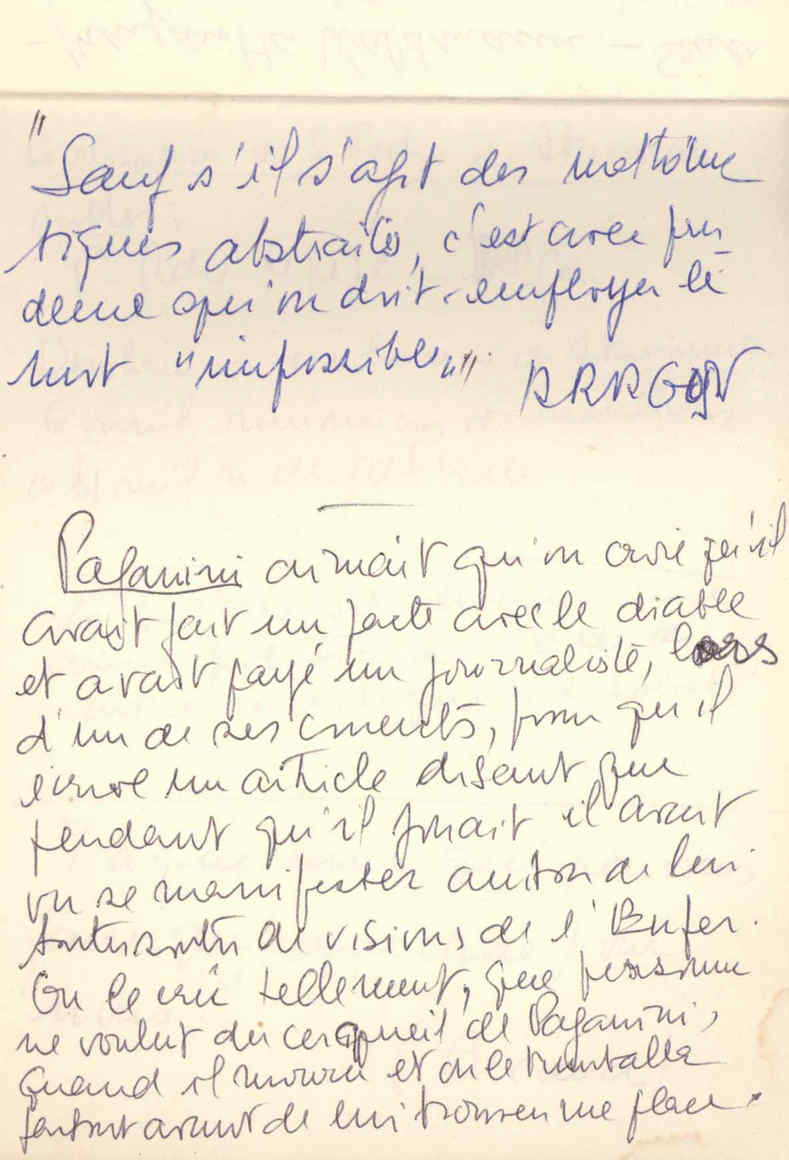 "Sauf s'il s'agit des mathéma
tiques abstraites, c'est avec pru_
dence qu'on doit employer le
mot "impossible"" ARAGON
Paganini aimait qu'on croie qu'il
avait fait un pacte avec le diable
et avait payé un journaliste, lors
d'un de ses concerts, pour qu'il
écrive un article disant que
pendant qu'il jouait il avait
vu se manifester autour de lui
toutes sortes de visions de l'Enfer.
On le crû tellement, que personne
ne voulut du cercueil de Paganini,
quand il mouru et on le trimballa
partout avant de lui trouver une place.